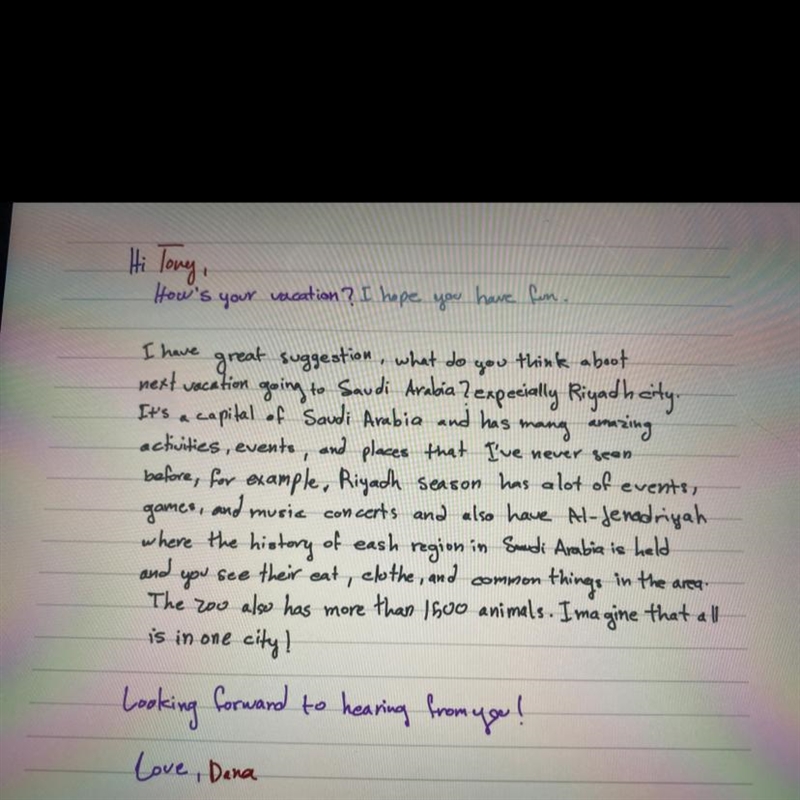 Hi Tony,
How's your vacation? I hope you have fun.
I have great suggestion, what do you think about
next vacation going to Saudi Arabia? expecially Riyadh city.
It's a capital of Saudi Arabia and has many amazing
activities, events, and places that I've never seen
before, for example, Riyadh season has alot of events,
games, and music concerts and also have Al-Jenadriyah
where the history of eash region in Saudi Arabia is held
and you see their eat, clothe, and common things in the area.
The zoo also has more than 1500 animals. Imagine that all
is in one city!
Looking forward to hearing from you!
Love, Dana